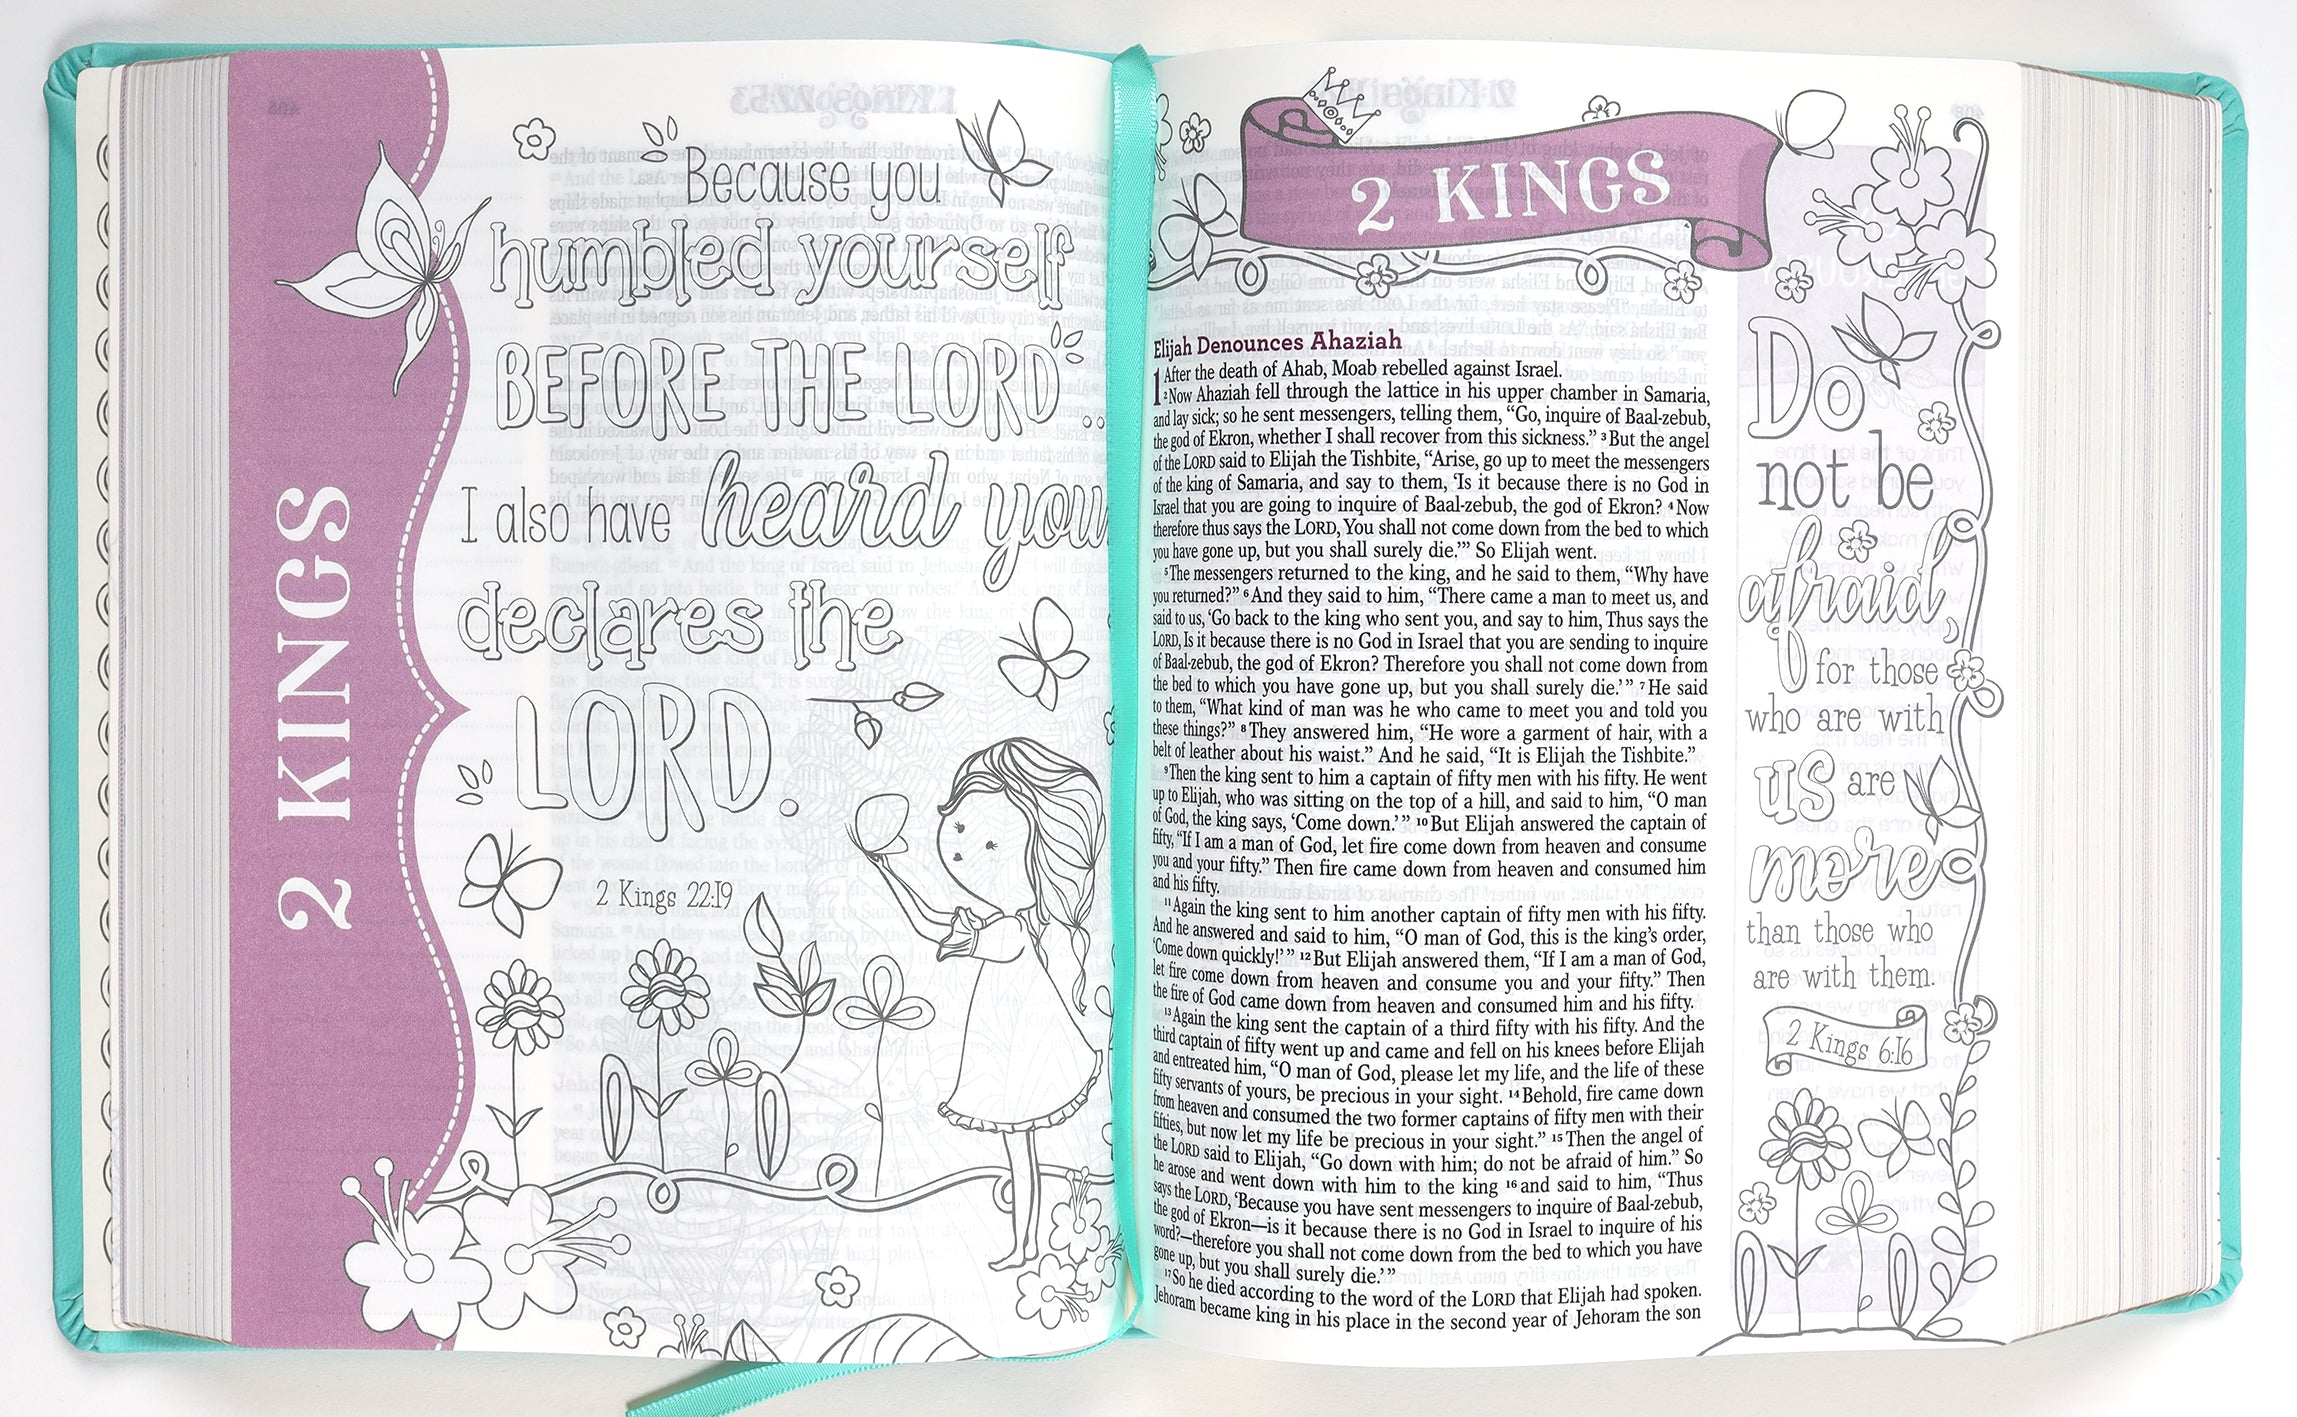 2 KINGS
Because you
humbled yourself
BEFORE THE LORD...
I also have heard you
declares the
LORD.
2 Kings 22:19
2 KINGS
Elijah Denounces Ahaziah
1 After the death of Ahab, Moab rebelled against Israel.
2 Now Ahaziah fell through the lattice in his upper chamber in Samaria,
and lay sick; so he sent messengers, telling them, “Go, inquire of Baal-zebub,
the god of Ekron, whether I shall recover from this sickness.” 3 But the angel
of the LORD said to Elijah the Tishbite, “Arise, go up to meet the messengers
of the king of Samaria, and say to them, ‘Is it because there is no God in
Israel that you are going to inquire of Baal-zebub, the god of Ekron? 4 Now
therefore thus says the LORD, You shall not come down from the bed to which
you have gone up, but you shall surely die.’” So Elijah went.
5 The messengers returned to the king, and he said to them, “Why have
you returned?” 6 And they said to him, “There came a man to meet us, and
said to us, ‘Go back to the king who sent you, and say to him, Thus says the
LORD, Is it because there is no God in Israel that you are sending to inquire
of Baal-zebub, the god of Ekron? Therefore you shall not come down from
the bed to which you have gone up, but you shall surely die.’” 7 He said
to them, “What kind of man was he who came to meet you and told you
these things?” 8 They answered him, “He wore a garment of hair, with a
belt of leather about his waist.” And he said, “It is Elijah the Tishbite.”
9 Then the king sent to him a captain of fifty men with his fifty. He went
up to Elijah, who was sitting on the top of a hill, and said to him, “O man
of God, the king says, ‘Come down.’” 10 But Elijah answered the captain of
fifty, “If I am a man of God, let fire come down from heaven and consume
you and your fifty.” Then fire came down from heaven and consumed him
and his fifty.
11 Again the king sent to him another captain of fifty men with his fifty.
And he answered and said to him, “O man of God, this is the king’s order,
‘Come down quickly!’” 12 But Elijah answered them, “If I am a man of God,
let fire come down from heaven and consume you and your fifty.” Then
the fire of God came down from heaven and consumed him and his fifty.
13 Again the king sent the captain of a third fifty with his fifty. And the
third captain of fifty went up and came and fell on his knees before Elijah
and entreated him, “O man of God, please let my life, and the life of these
fifty servants of yours, be precious in your sight. 14 Behold, fire came down
from heaven and consumed the two former captains of fifty men with their
fifties, but now let my life be precious in your sight.” 15 Then the angel of
the LORD said to Elijah, “Go down with him; do not be afraid of him.” So
he arose and went down with him to the king 16 and said to him, “Thus
says the LORD, ‘Because you have sent messengers to inquire of Baal-zebub,
the god of Ekron—is it because there is no God in Israel to inquire of his
word?—therefore you shall not come down from the bed to which you have
gone up, but you shall surely die.’”
17 So he died according to the word of the LORD that Elijah had spoken.
Jehoram became king in his place in the second year of Jehoram the son
Do
not be
afraid,
for those
who are with
us are
more
than those who
are with them.
2 Kings 6:16